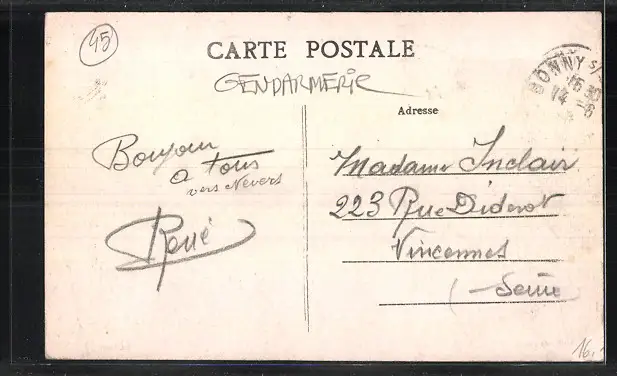 45
CARTE POSTALE
GENDARMERIE
BONNY S/
16 30
14 -6
Adresse
Bonjour
a tous
vers Nevers
René
Madame Inclair
223 Rue Diderot
Vincennes
(Seine
16,-